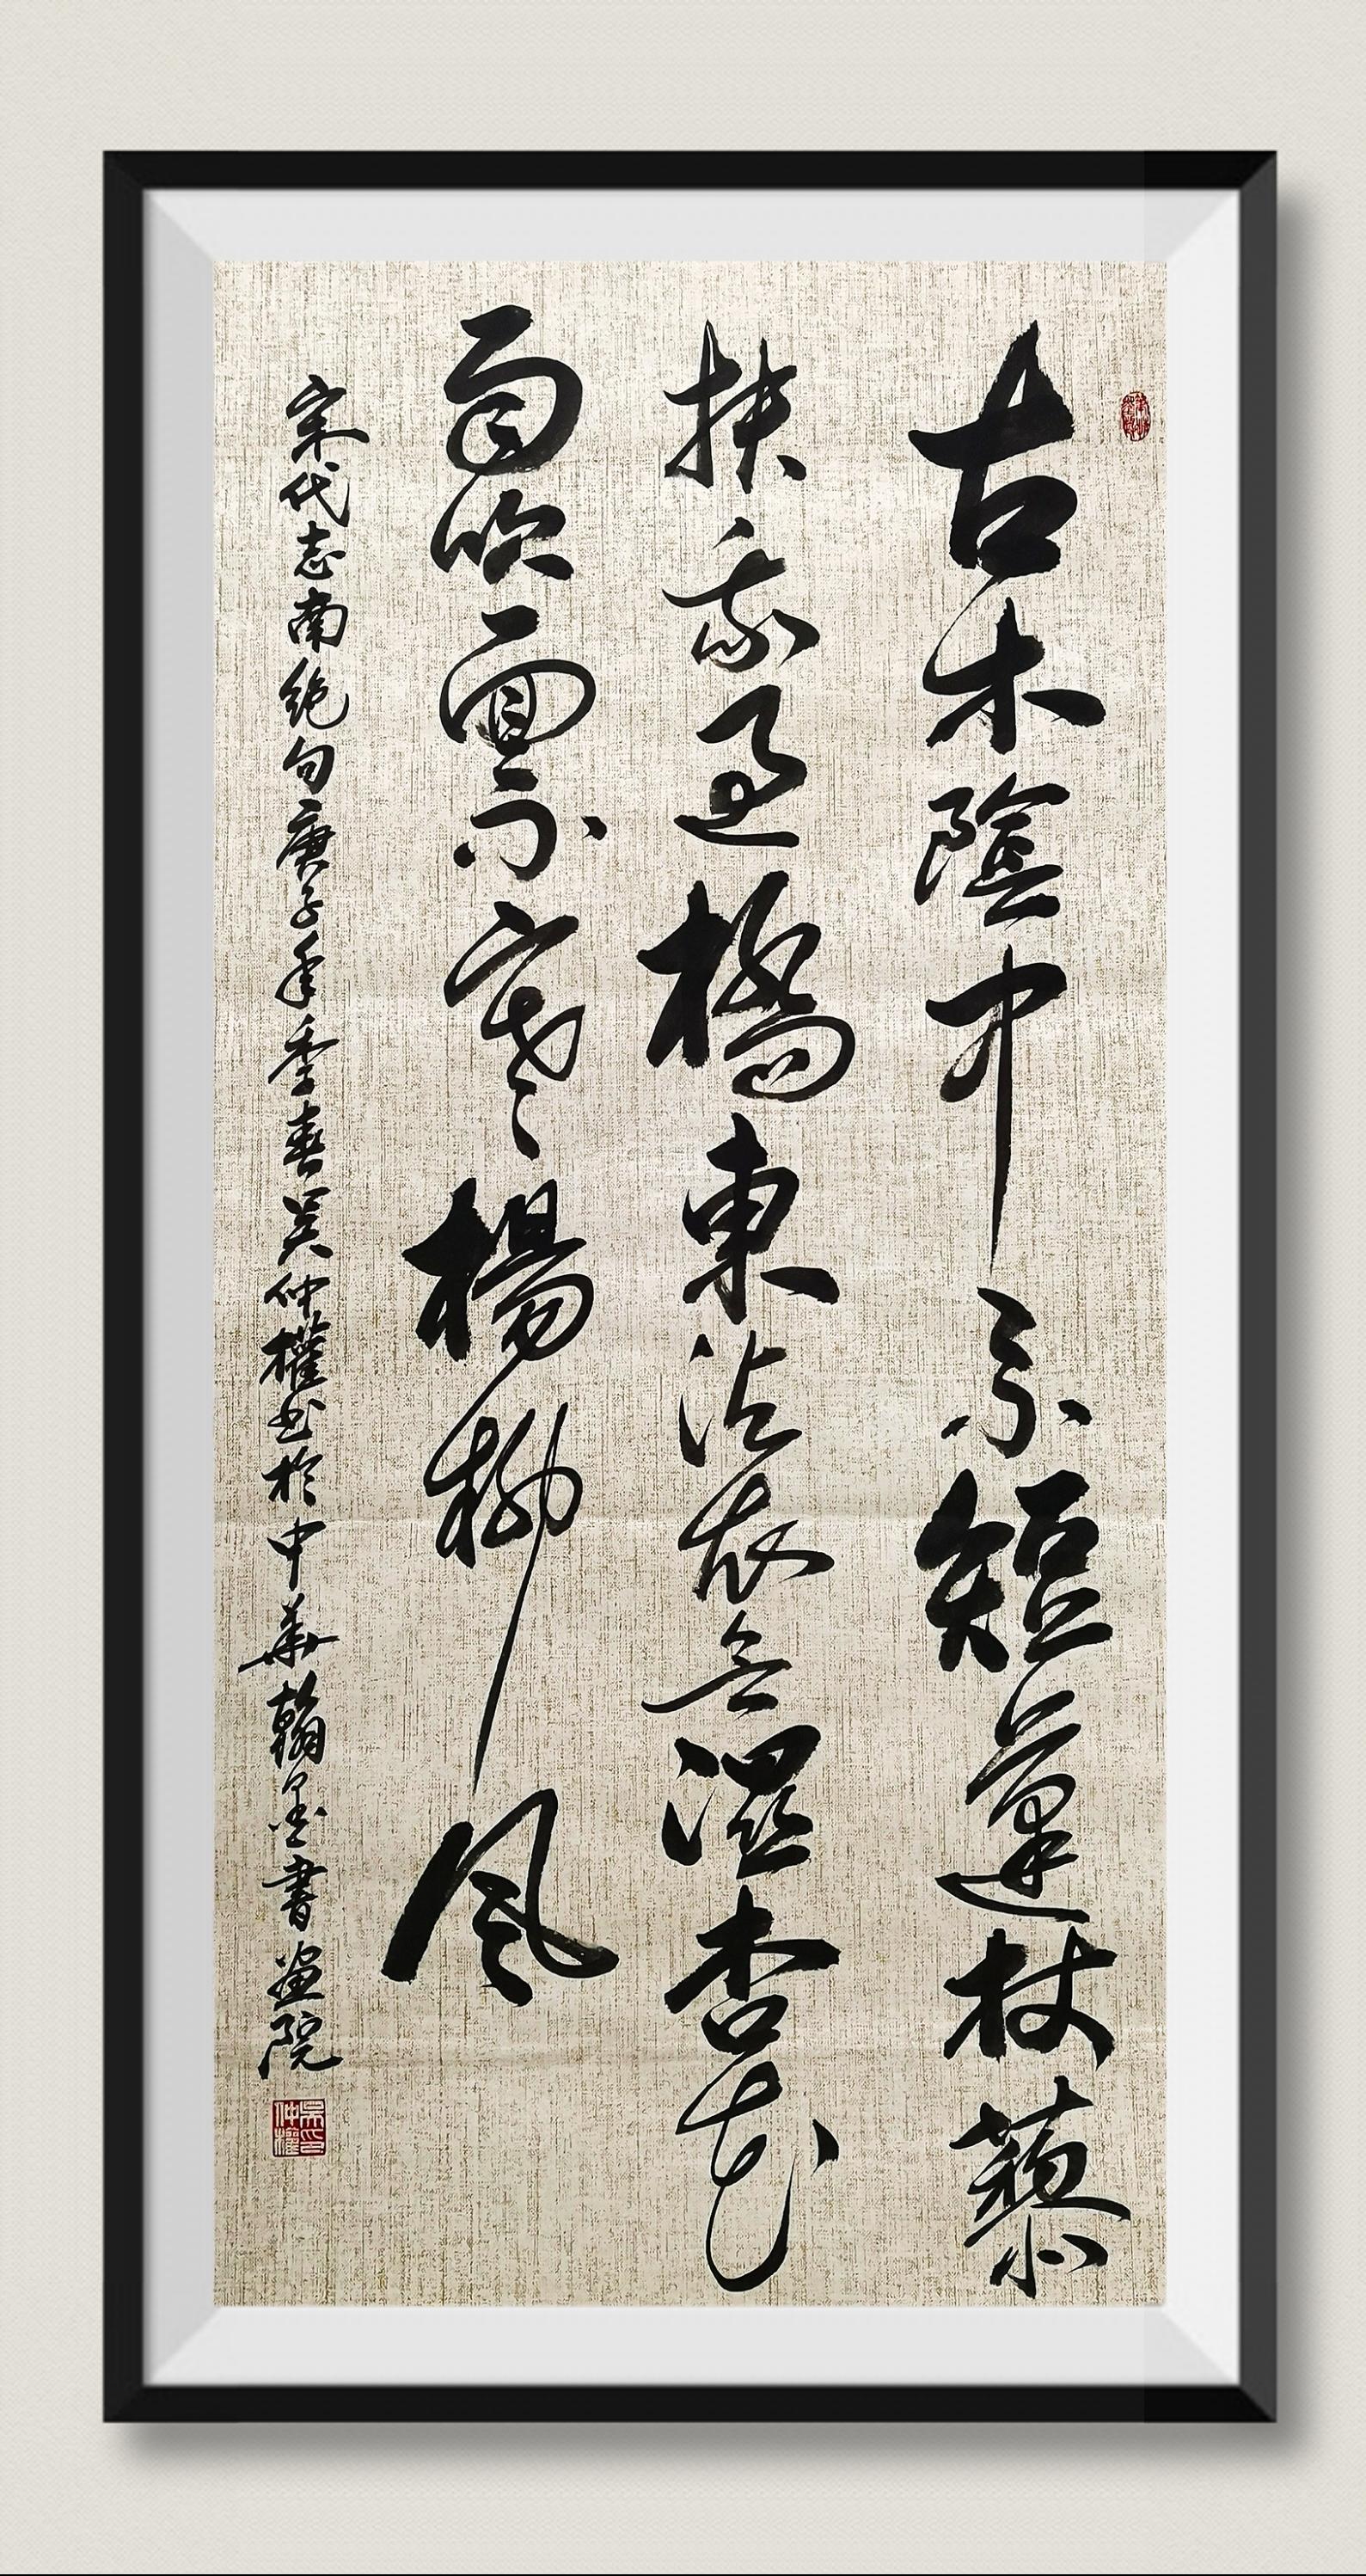 古木陰中系短蓬杖藜
扶我過橋東沾衣欲濕杏花
雨吹面不寒楊柳風
宋代志南絶句庚子年季春吴仲權书於中華翰墨書畫院
吴印仲權